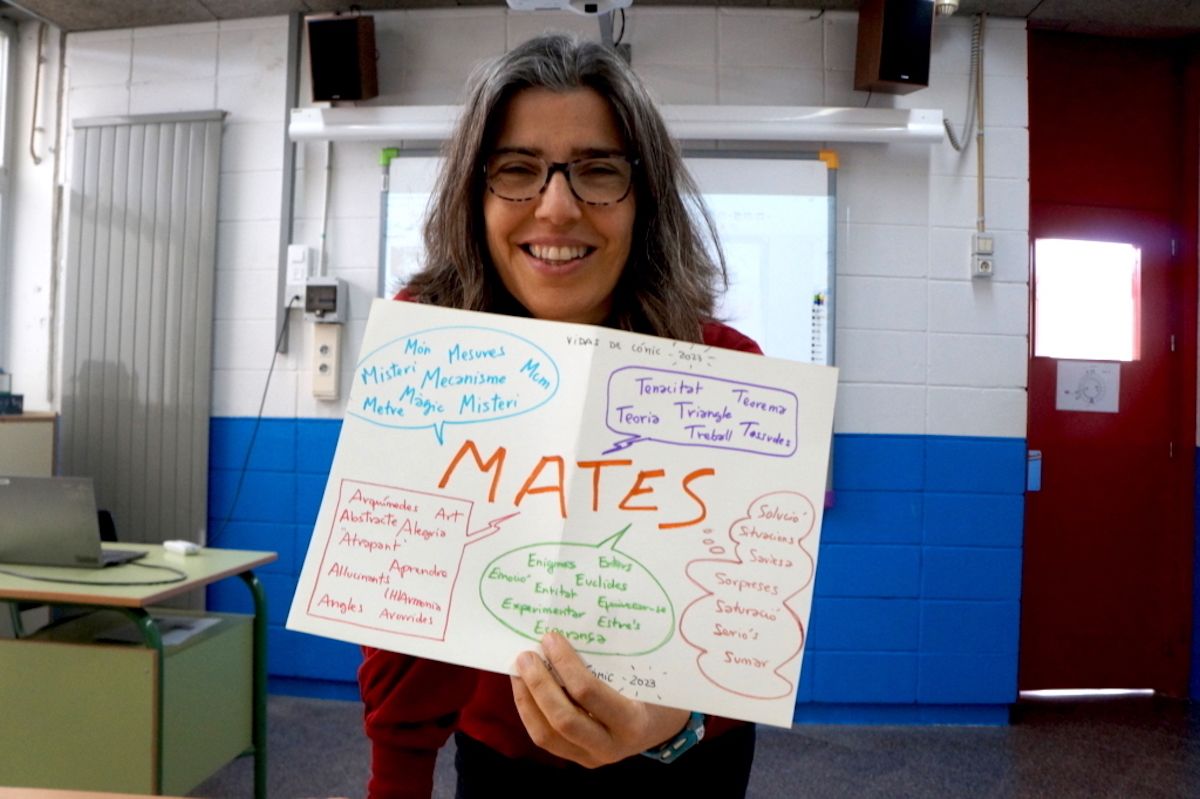 VIDAS DE CÓMIC - 2023 -
Món Mesures
Misteri Mecanisme Mcm
Màgic
Metre Misteri
Tenacitat Teorema
Teoria Triangle
Treball Tossudes
MATES
Arquímedes Art
Abstracte Alegria
"Atrapant"
Aprendre
Al·lucinants
(H)Armonia
Angles Avorrides
Enigmes Errors
Emoció Euclides
Entitat Equivocar-se
Experimentar Estrès
Esperança
Solució
Situacions
Saviesa
Sorpreses
Saturació
Seriós
Sumar
CÓMIC - 2023